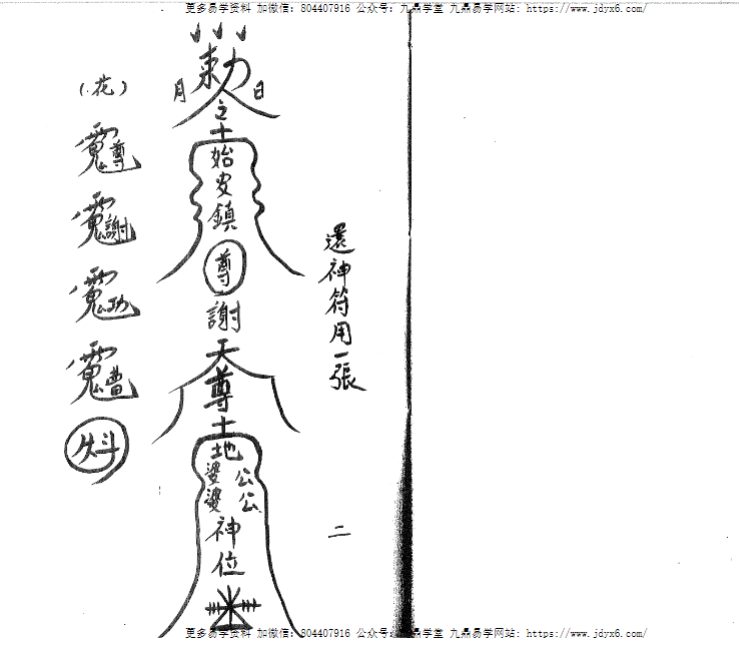 更多易学资料 加微信：804407916 公众号：九鼎学堂 九鼎易学网站：https://www.jdyx6.com/
還神符用一張
二
勅
日
月
令
始皮鎮
尊
謝
天尊
土地
公公
婆婆
神位
（花）
尊
謝
功
曹
更多易学资料 加微信：804407916 公众号：九鼎学堂 九鼎易学网站：https://www.jdyx6.com/